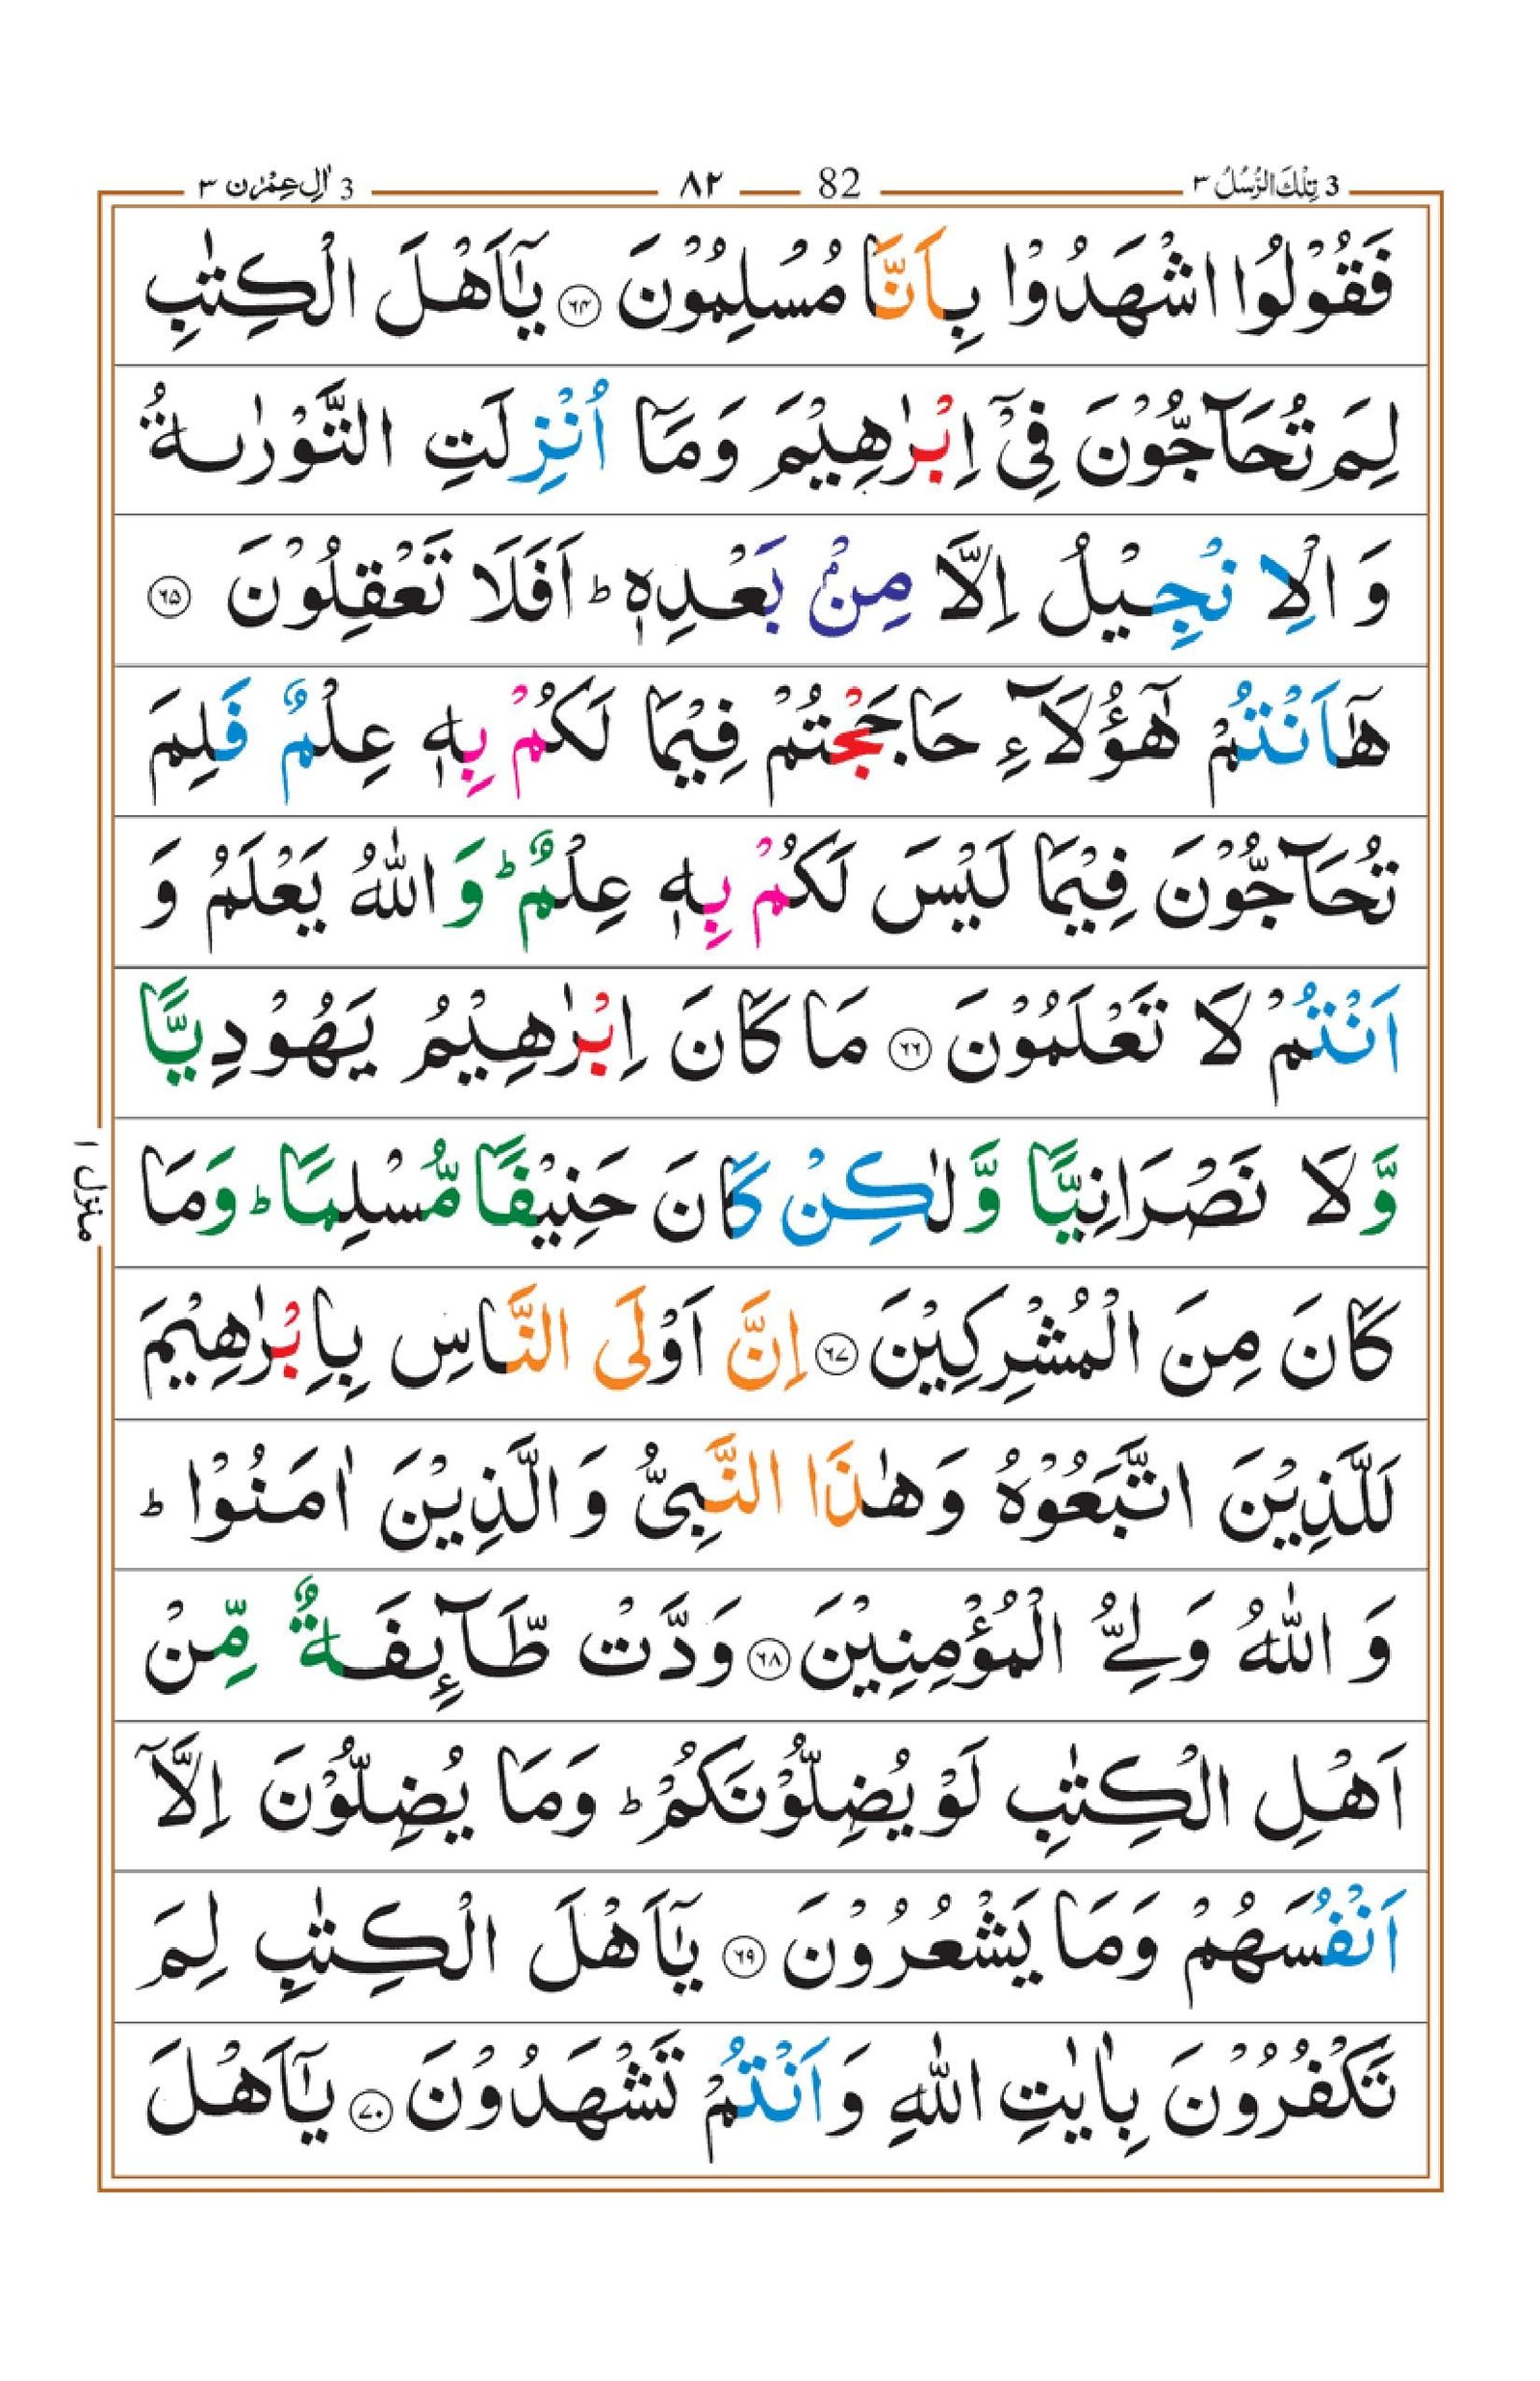 3 تِلْكَ الرُّسُلُ ٣
82 ٨٢
3 اٰلِ عِمْرٰن ٣
فَقُوْلُوا اشْهَدُوْا بِاَنَّا مُسْلِمُوْنَ ﴿۶۴﴾ يٰۤاَهْلَ الْكِتٰبِ
لِمَ تُحَآجُّوْنَ فِيْۤ اِبْرٰهِيْمَ وَمَاۤ اُنْزِلَتِ التَّوْرٰىةُ
وَ الْاِنْجِيْلُ اِلَّا مِنْۢ بَعْدِهٖ ؕ اَفَلَا تَعْقِلُوْنَ ﴿۶۵﴾
هٰۤاَنْتُمْ هٰۤؤُلَآءِ حَاجَجْتُمْ فِيْمَا لَكُمْ بِهٖ عِلْمٌ فَلِمَ
تُحَآجُّوْنَ فِيْمَا لَيْسَ لَكُمْ بِهٖ عِلْمٌ ؕ وَ اللّٰهُ يَعْلَمُ وَ
اَنْتُمْ لَا تَعْلَمُوْنَ ﴿۶۶﴾ مَا كَانَ اِبْرٰهِيْمُ يَهُوْدِيًّا
وَّلَا نَصْرَانِيًّا وَّلٰكِنْ كَانَ حَنِيْفًا مُّسْلِمًا ؕ وَمَا
كَانَ مِنَ الْمُشْرِكِيْنَ ﴿۶۷﴾ اِنَّ اَوْلَى النَّاسِ بِاِبْرٰهِيْمَ
لَلَّذِيْنَ اتَّبَعُوْهُ وَهٰذَا النَّبِيُّ وَ الَّذِيْنَ اٰمَنُوْا ؕ
وَ اللّٰهُ وَلِيُّ الْمُؤْمِنِيْنَ ﴿۶۸﴾ وَدَّتْ طَّآىِٕفَةٌ مِّنْ
اَهْلِ الْكِتٰبِ لَوْ يُضِلُّوْنَكُمْ ؕ وَمَا يُضِلُّوْنَ اِلَّاۤ
اَنْفُسَهُمْ وَمَا يَشْعُرُوْنَ ﴿۶۹﴾ يٰۤاَهْلَ الْكِتٰبِ لِمَ
تَكْفُرُوْنَ بِاٰيٰتِ اللّٰهِ وَاَنْتُمْ تَشْهَدُوْنَ ﴿۷۰﴾ يٰۤاَهْلَ
منزل ١